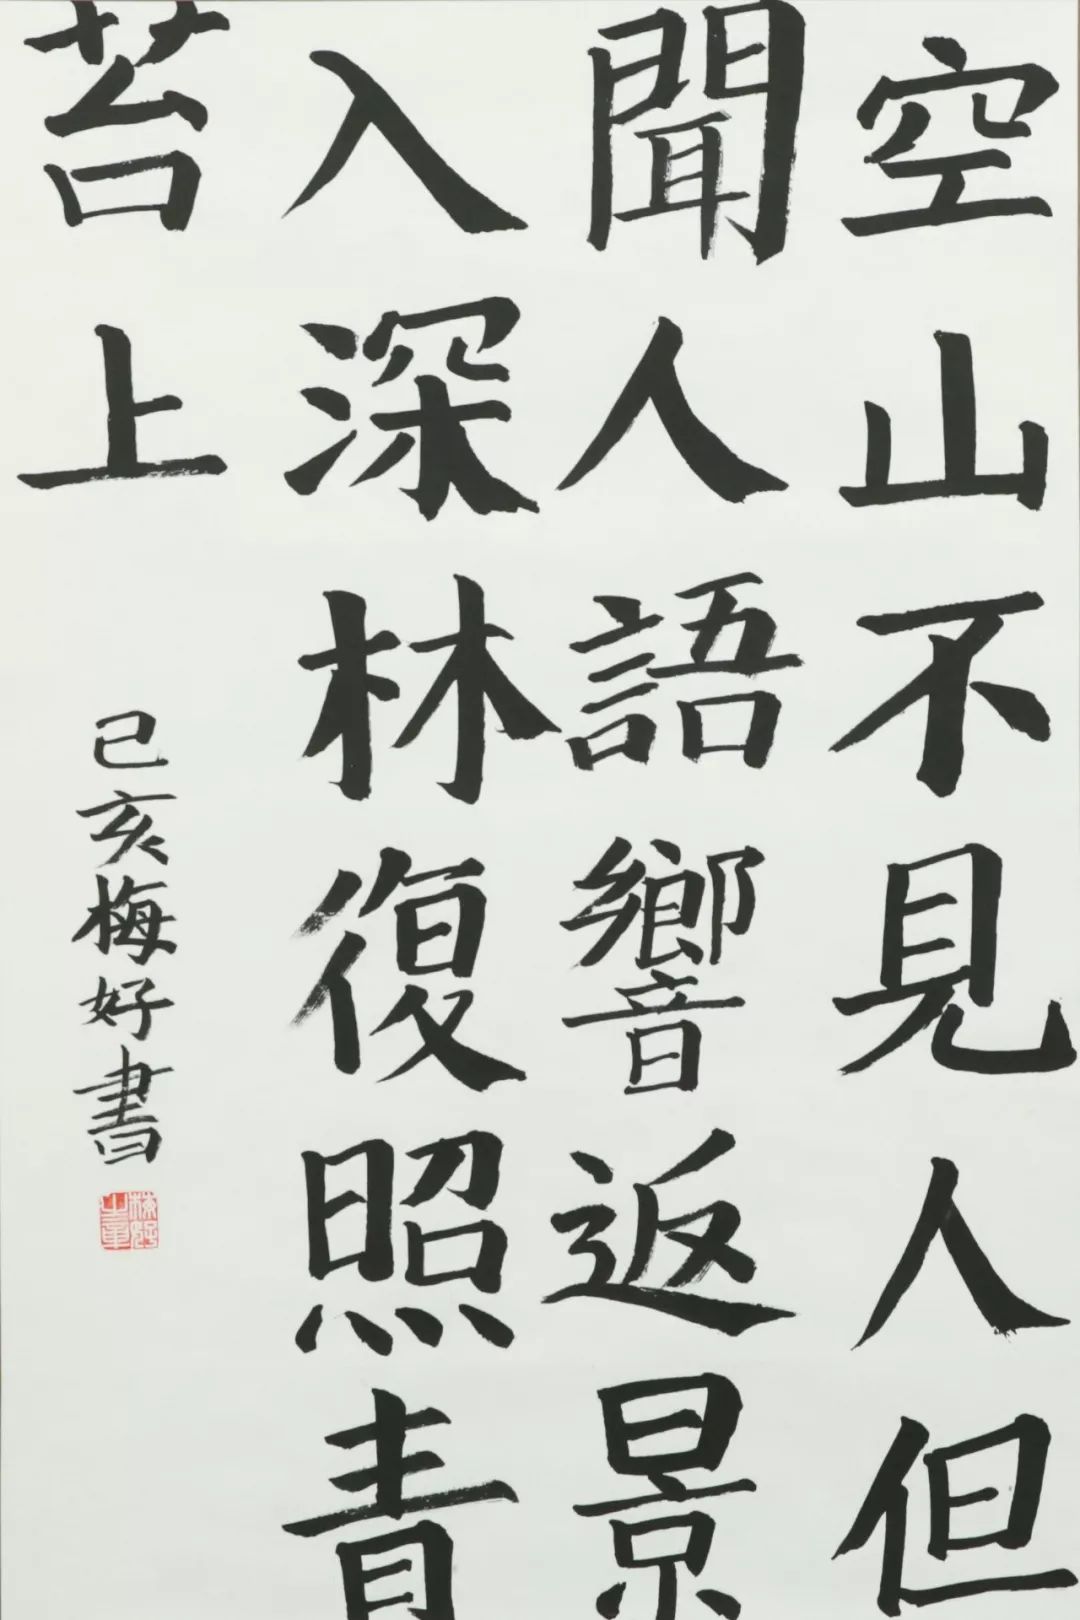 空山不見人但
聞人語響返景
入深林復照青
苔上
己亥梅好書